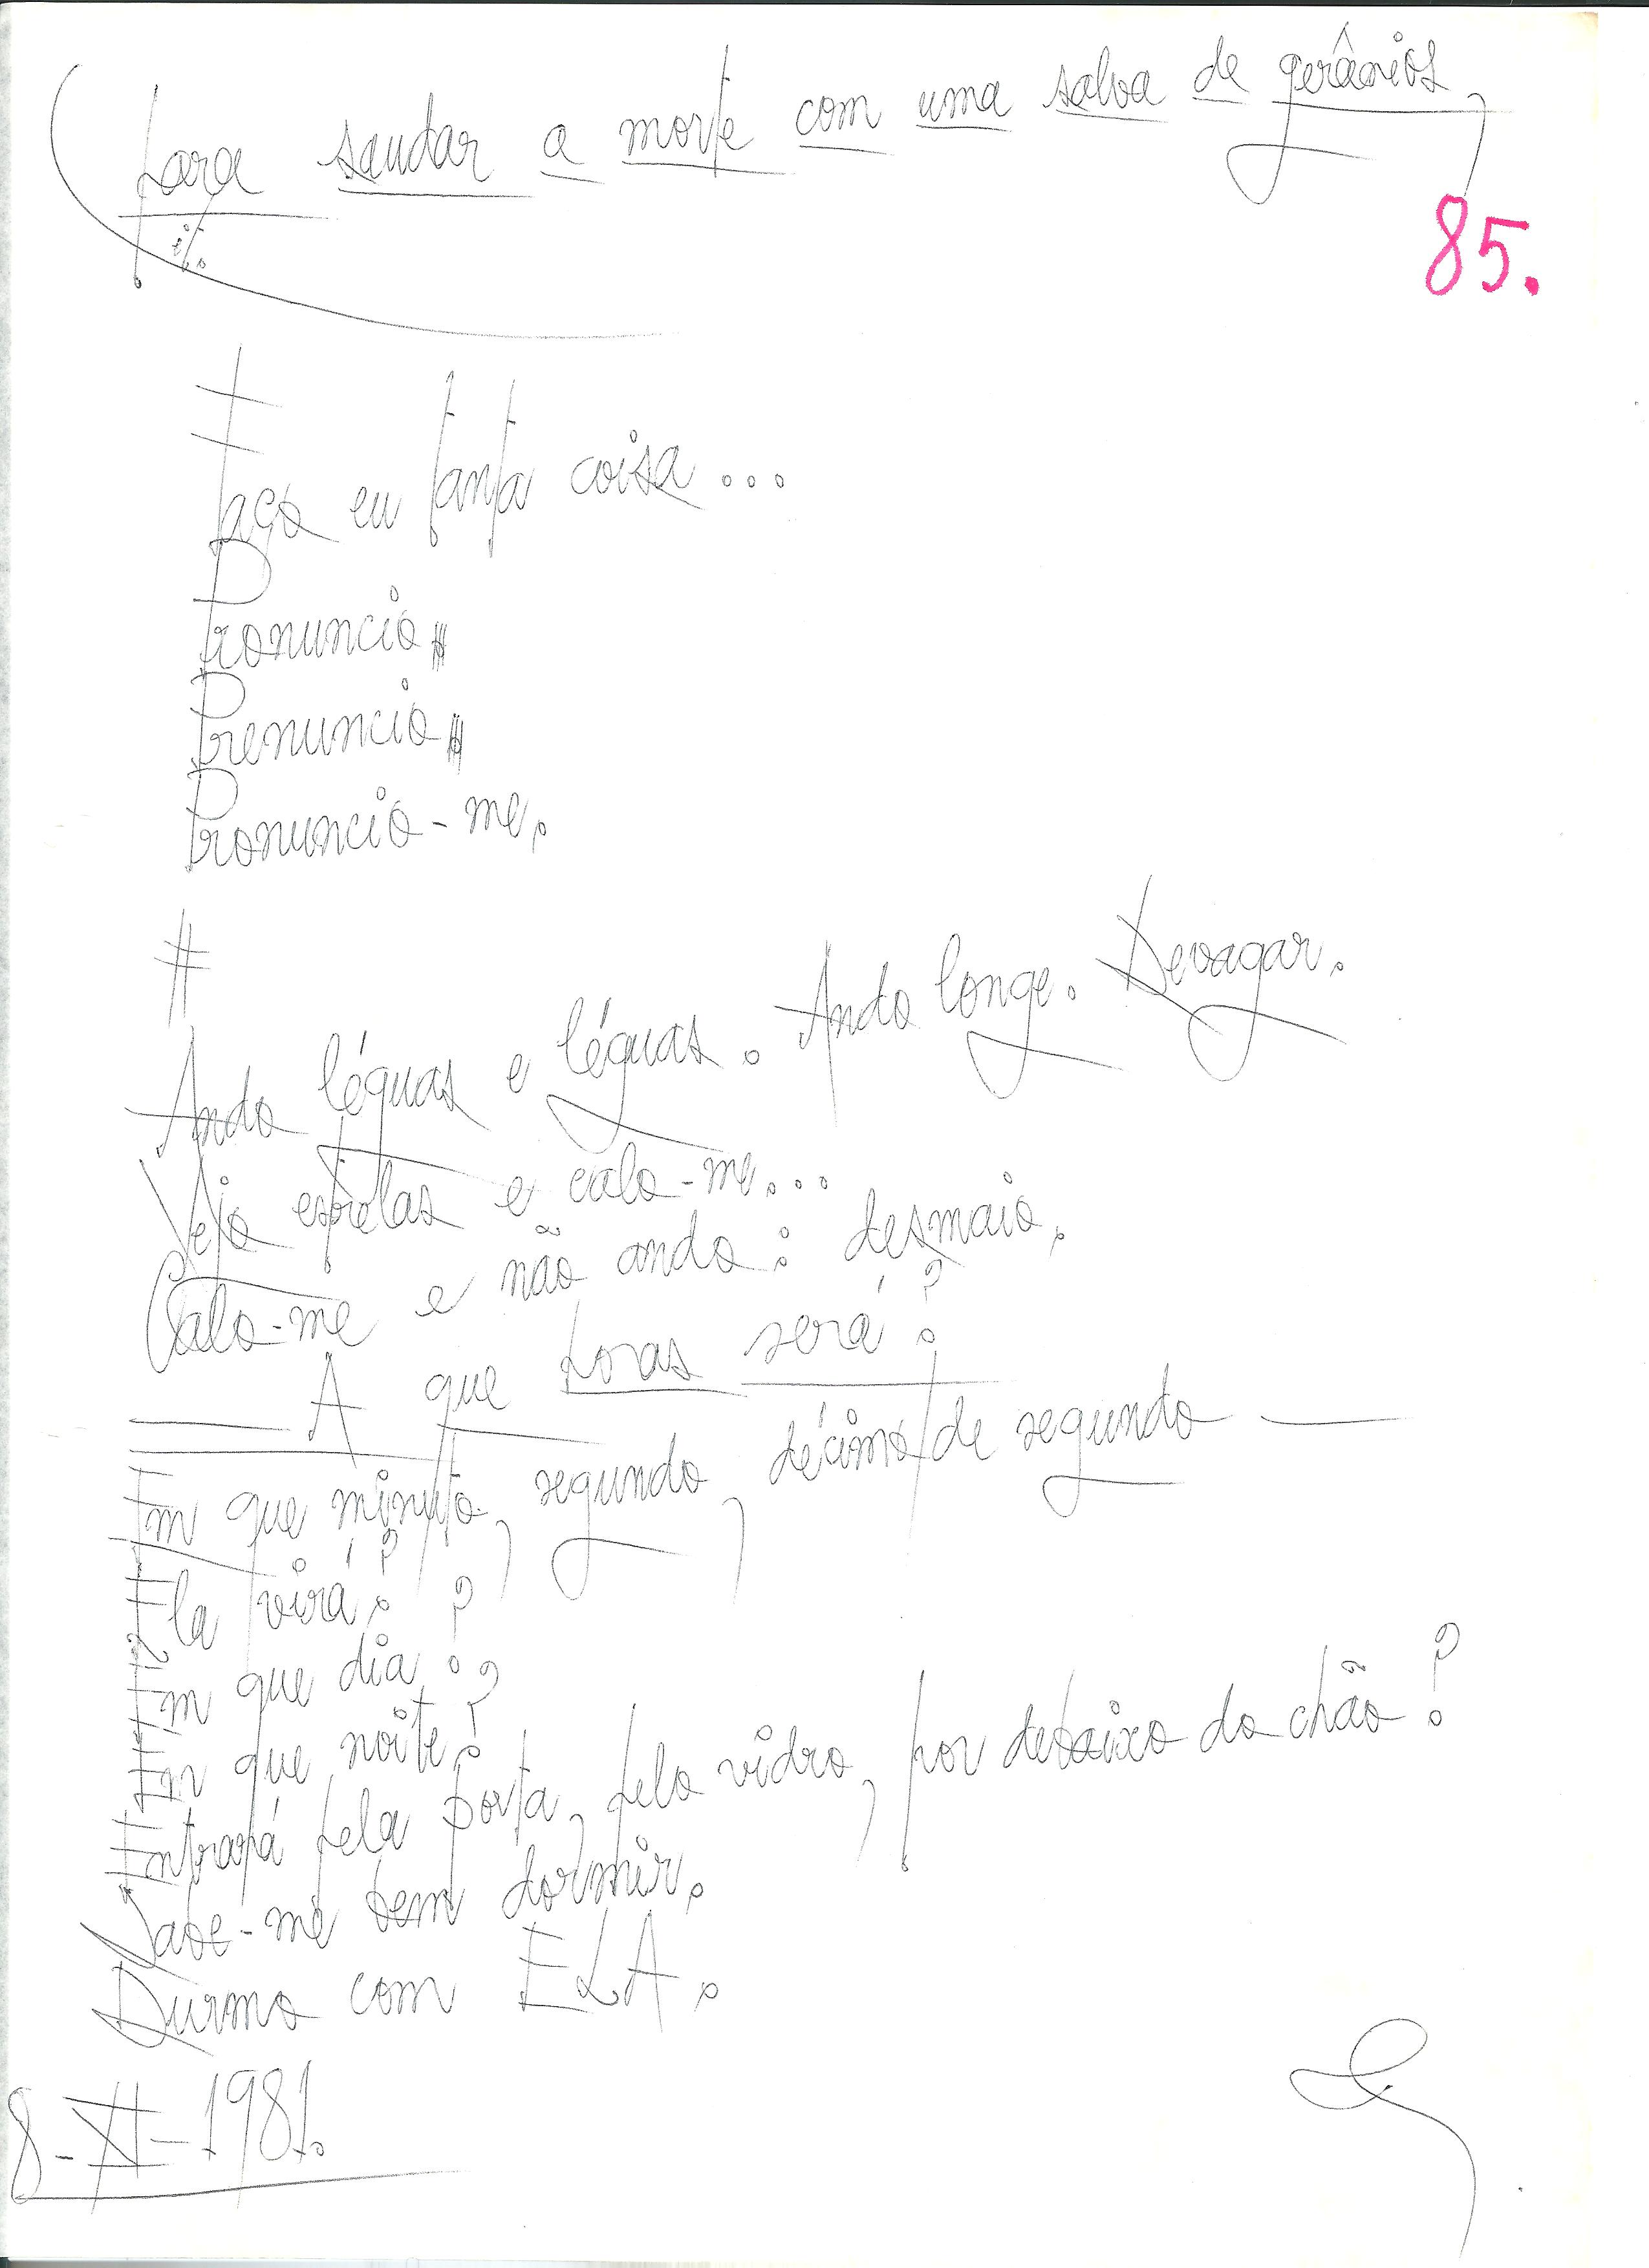 para saudar a morte com uma salva de gerânios,
85.
Faço eu tanta coisa...
Pronuncio
Prenuncio
Pronuncio-me.
#
Ando léguas e léguas. Ando longe. Devagar.
Vejo estrelas e calo-me...
Calo-me e não ando: desmaio.
A que horas será?
Em que minuto, segundo, décimo de segundo —
Ela virá?
Em que dia?
Em que noite?
Entrará pela porta, pelo vidro, por debaixo do chão?
Sabe-me bem dormir.
Durmo com ELA.
8-XI-1981.